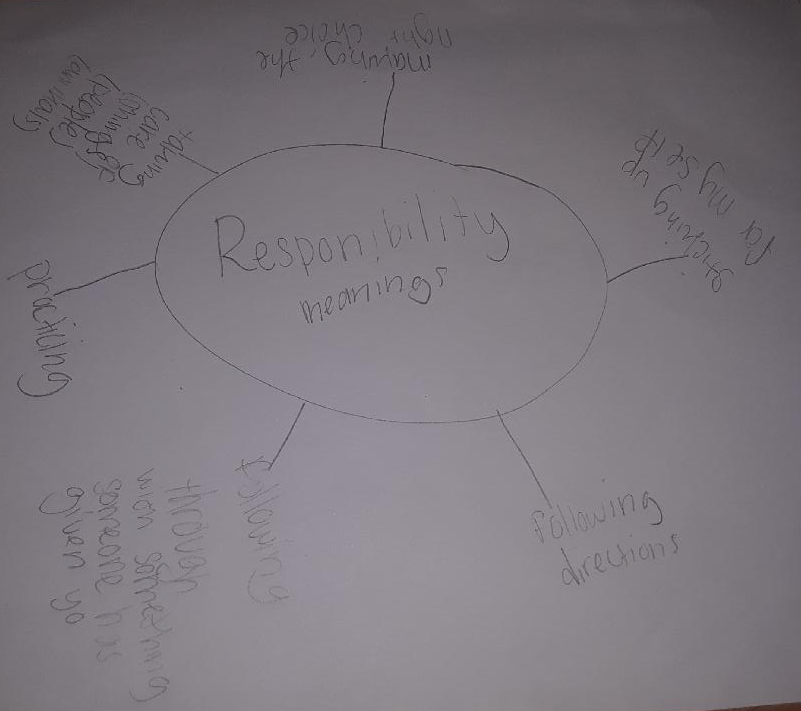 Responibility
meanings
making the
right choice
sticking up
for my self
following
directions
following
through
with something
someone has
given yo
practicing
taking
care
(things or
people,
animals)